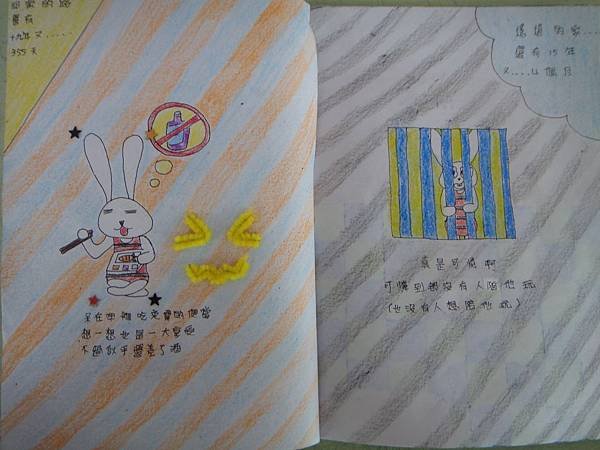 回家的路
還有
十九年又.....
355天
呆在牢裡吃免費的便當
想一想也是一大享受
不過似乎還差了酒
還有15年
又....4個月
真是可憐啊
可憐到都沒有人陪他玩
(也沒有人想陪他玩)